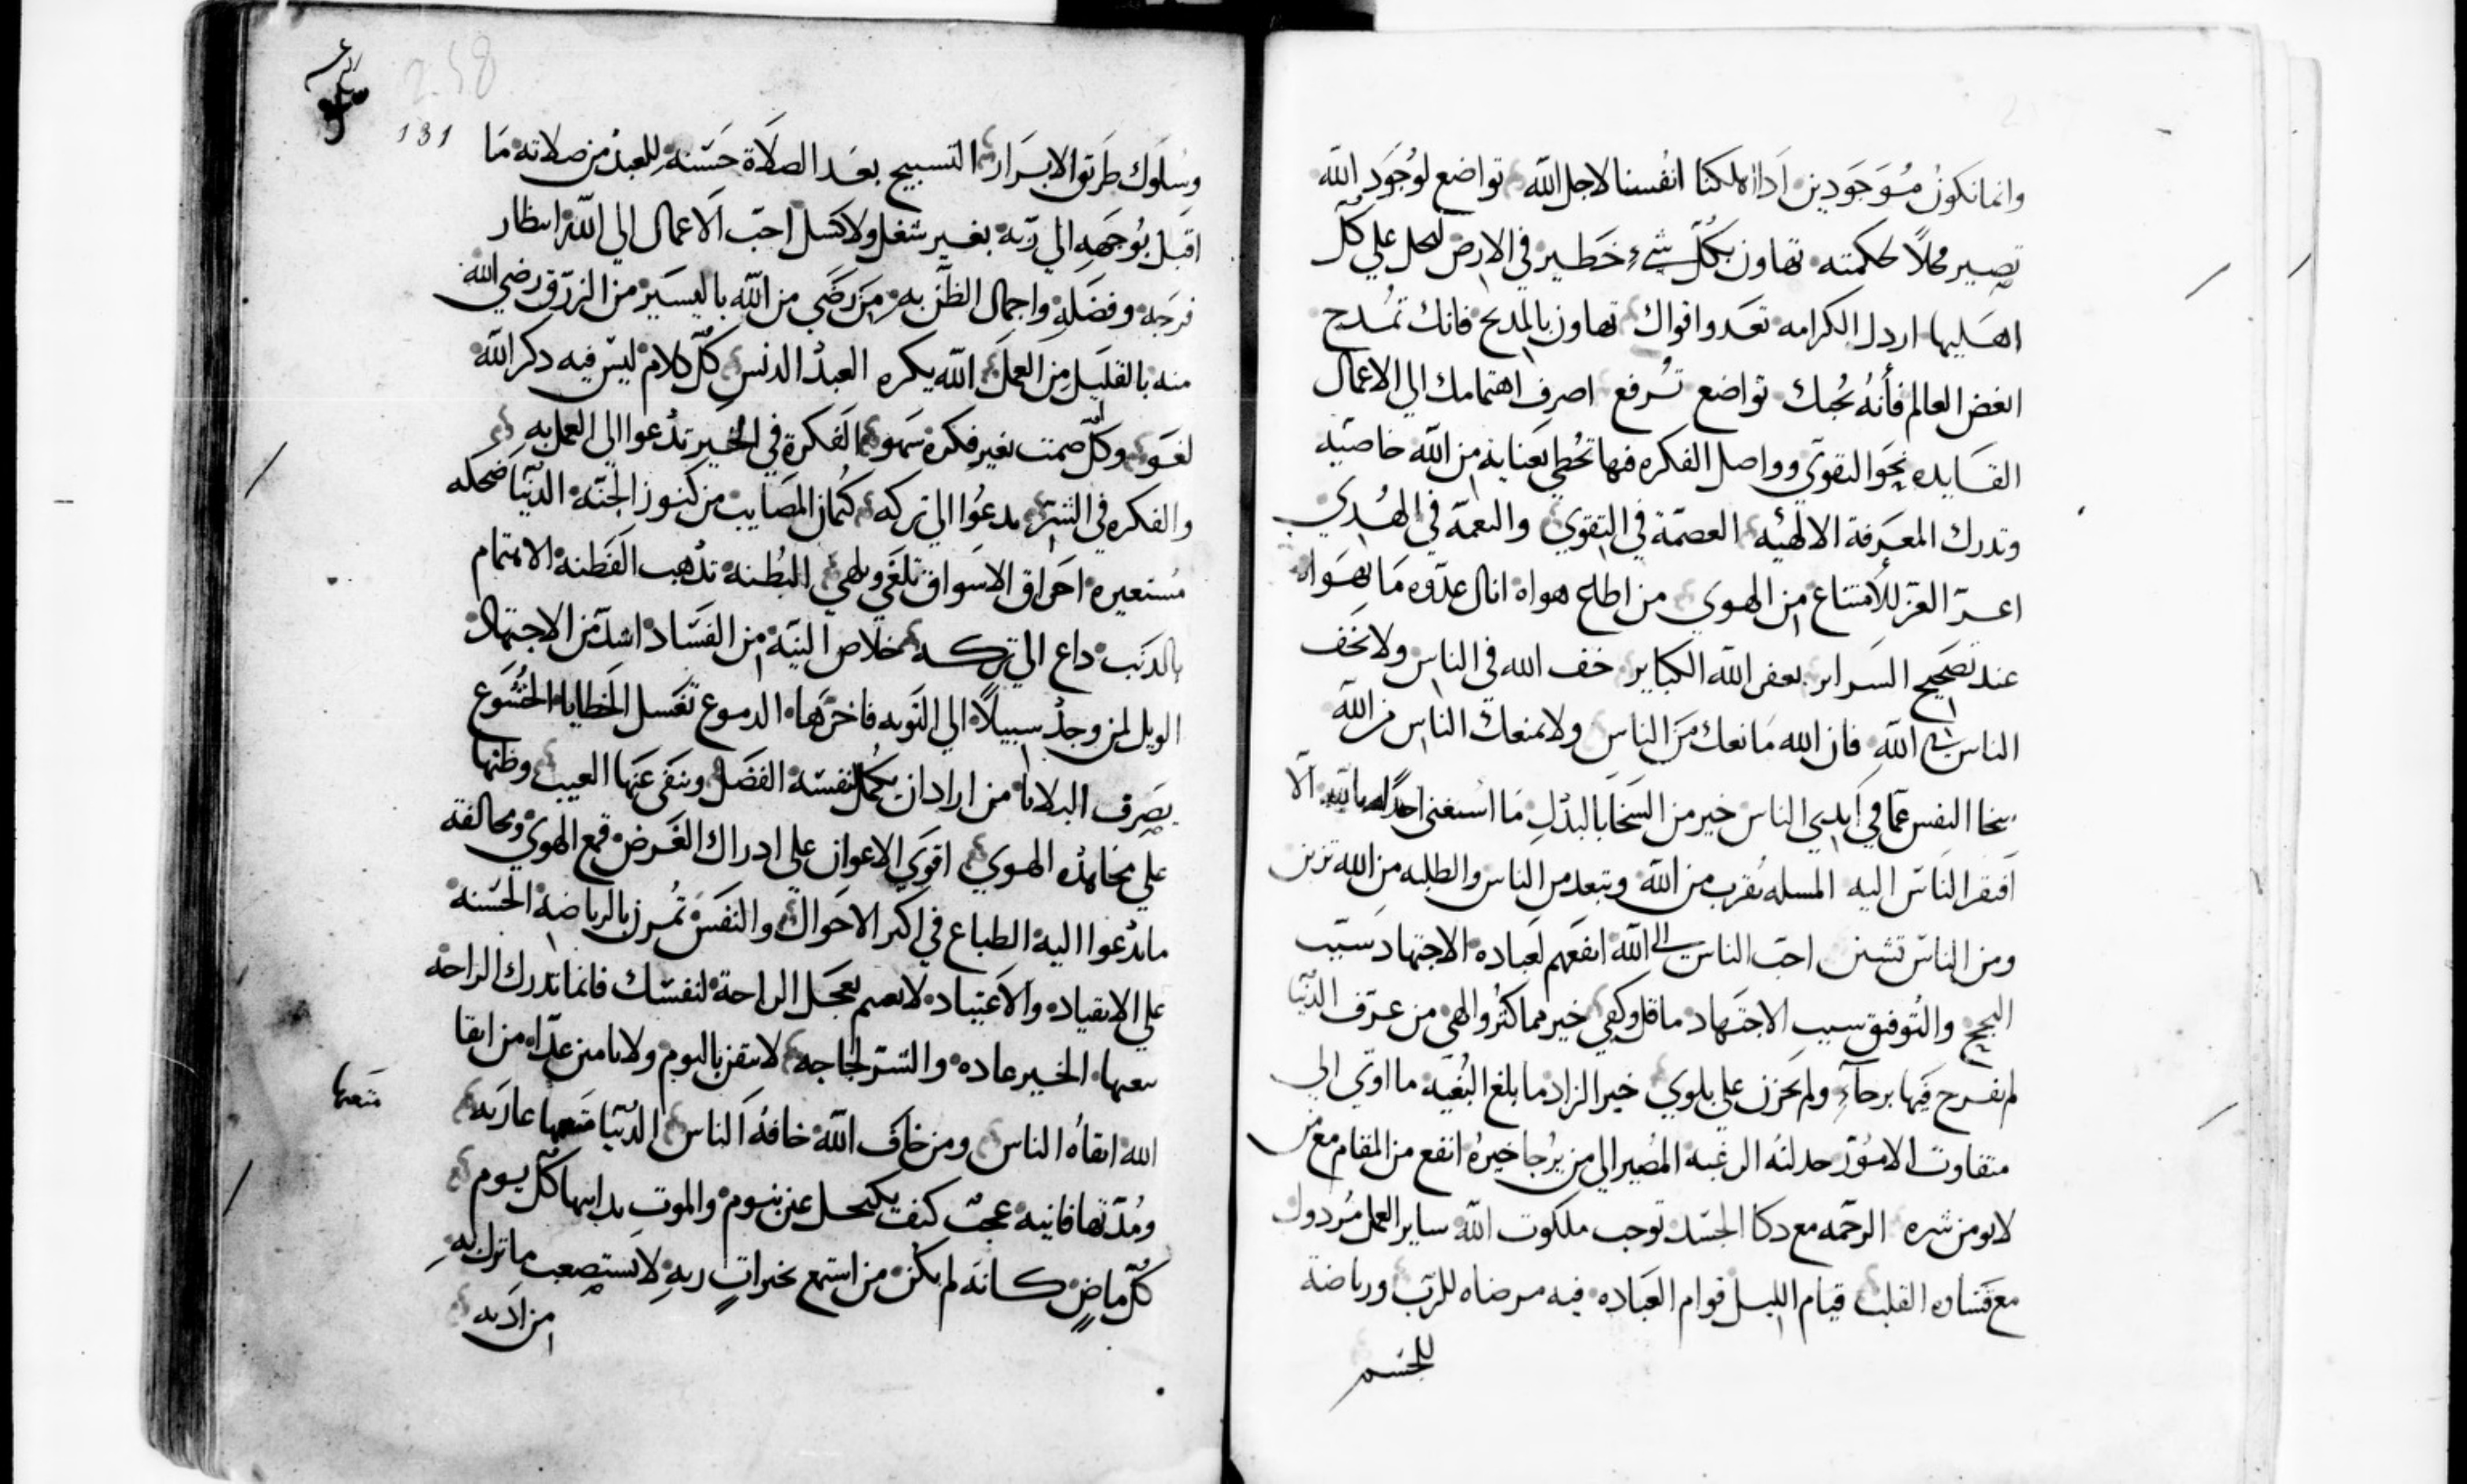 وانما نكون موجودين اذا اهلكنا انفسنا لاجل الله تواضع لوجود الله
تصير محلاً لحكمته تهاون بكل شيء خطير في الارض لتحل علي كل
اهليها اردل الكرامه تعدو اقواك تهاون بالمدح فانك تمدح
ابغض العالم فأنه يحبك تواضع تُرفع اصرف اهتمامك الي الاعمال
القايده نحو التقوي وواصل الفكره فيها تحظي بعناية من الله خاصيّه
وتدرك المعرفة الالهيه العصمة في التقوي والنعمة في الهُدي
اعزّ العز للأمتناع من الهوي من اطاع هواه انال عدّوه ما يهواه
عند تصحيح السراير يغفر الله الكباير خف الله في الناس ولا تخف
الناس في الله فان الله مانعك من الناس ولا يمنعك الناس من الله
سخا النفس عمّا في ايدي الناس خير من السخا بالبذل ما استغني احداً بالله الّا
افتقر الناس اليه المسله تُقرب من الله وتبعد من الناس والطلبه من الله تزين
ومن الناس تشين احبّ الناس الي الله انفعهم لعباده الاجتهاد سبب
النجح والتوفيق سبب الاجتهاد ما قل وكفي خير مما كثُر والهي من عرف الدنيا
لم يفرح فيها برخآءٍ ولم يحزن علي بلوي خير الزاد ما بلغ البُغيه ما اوتي الي
متفاوت الامور الرغبه المصير الي من يُرجا خيرهُ انفع من المقام مع من
لا يومن شره الرحمه مع دكا الجسد توجب ملكوت الله ساير العمل مردول
مع قساوه القلب قيام الليل قوام العباده فيه مرضاه للرب ورياضة
للجسم
131
258
وسلوك طريق الابرار التسبيح بعد الصلاة حسنه للعبد من صلاته ما
اقبل بوجهه الي ربه بغير شغل ولا كسل احبّ الاعمال الي الله انتظار
فرجه وفضله واجمال الظن به من رضي من الله باليسير من الرزق رضي الله
منه بالقليل من العمل الله يكره العبد الدنس كلّ كلام ليس فيه دكر الله
لغو وكلّ صمت بغير فكرة سهو الفكرة في الخير تدعوا الي العمل به
والفكره في الشر تدعوا الي تركه كتمان المصايب من كنوز الجنه الدنيا ضحكه
مستعيره احراق الاسواق تلغي وتلهي البُطنه تدهب الفطنة الاهتمام
بالدنب داع الي تركه خلاص النيّه من الفساد اشدّ من الاجتهاد
الويل لمن وجد سبيلاً الي التوبه فاخرّها الدموع تغسل الخطايا الخشوع
يصرف البلايا من اراد ان يكمل لنفسه الفضل وينفي عنها العيب
علي مجاهده الهوي اقوي الاعوان علي ادراك الغرض قمع الهوي ومخالفة
ما تدعوا اليه الطباع في اكبر الاحوال والنفس تُمرن بالرياضة الحسنه
علي الانقياد والاعتياد بعجل الراحة لنفسك فانما تدرك الراحة
الخير عاده والشرّ لجاجه لا تثقن باليوم ولا تامن غدا من اتقا
متعها
الله اتقاه الناس ومن خاف الله خافهُ الناس الدنيا متعها عاريه
ومدّتها فانيه عجبٌ كيف تكتحل عين بنوم والموت كلّ يوم
كلّ ماضٍ كانه لم يكن من استمتع بخيرات ربهِ لا يستصعب ما ترك له
من اديه